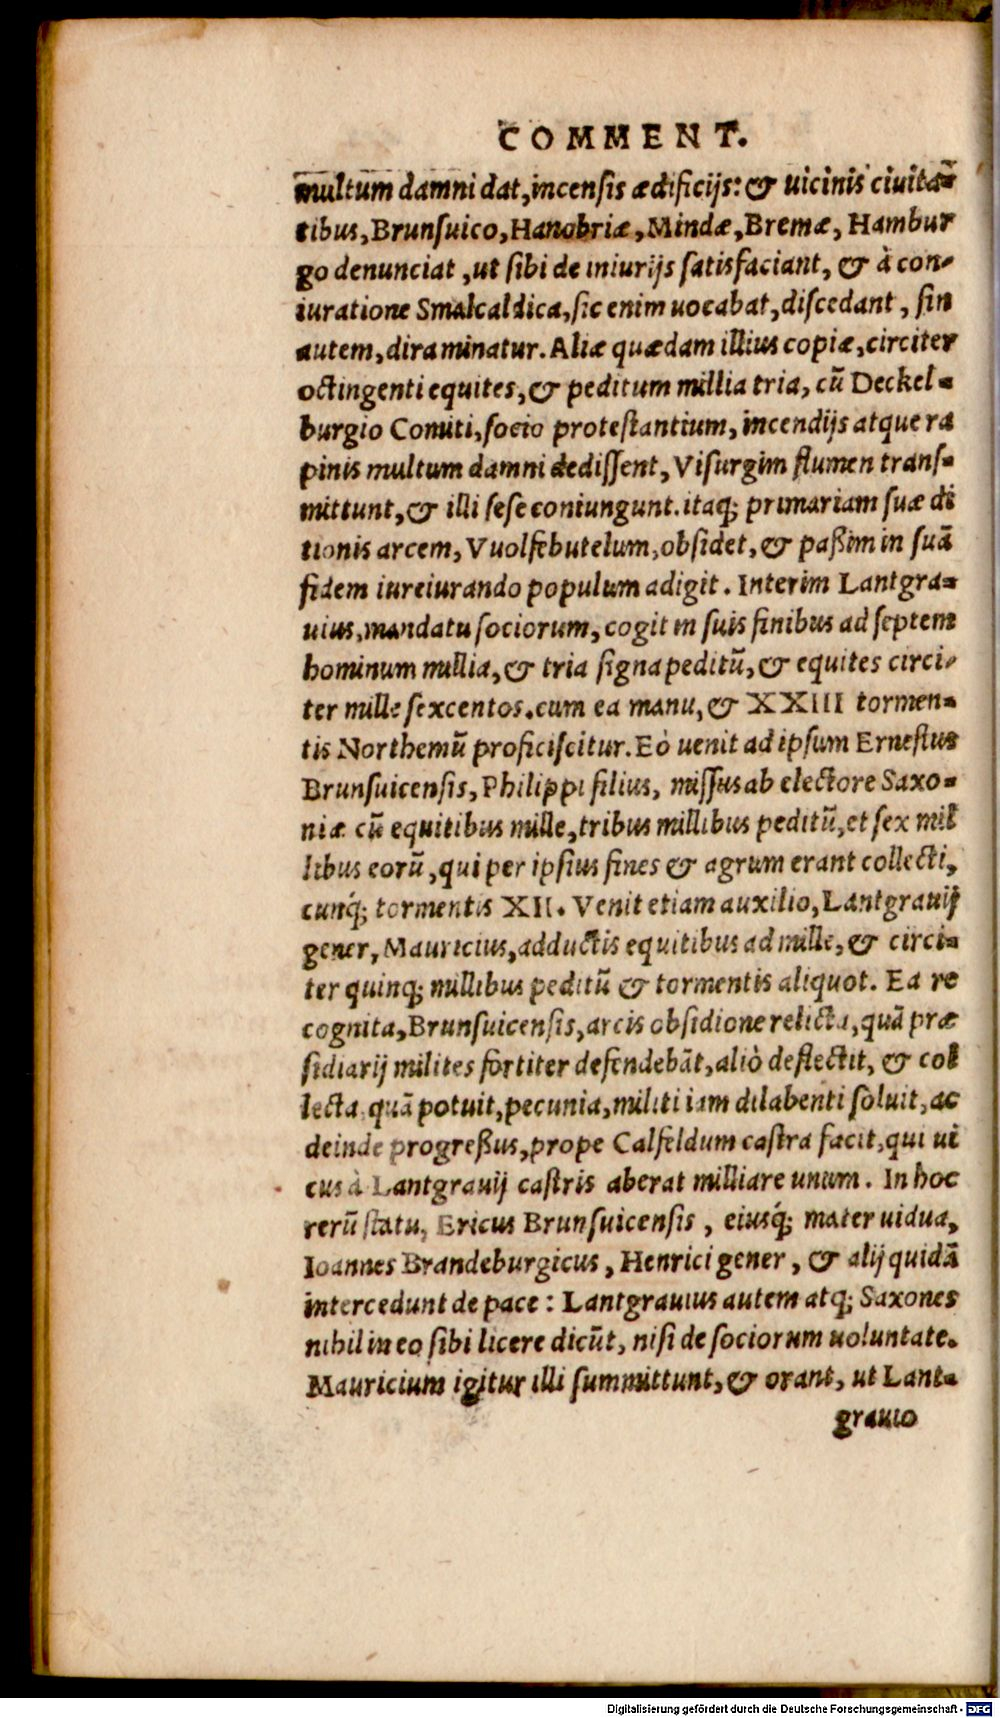 COMMENT.
multum damni dat, incensis ædificijs: & uicinis ciuita-
tibus, Brunsuico, Hanobriæ, Mindæ, Bremæ, Hambur
go denunciat, ut sibi de iniurijs satisfaciant, & à con-
iuratione Smalcaldica, sic enim uocabat, discedant, sin
autem, dira minatur. Aliæ quædam illius copiæ, circiter
octingenti equites, & peditum millia tria, cū Deckel-
burgio Comiti, socio protestantium, incendijs atque ra
pinis multum damni dedissent, Visurgim flumen trans-
mittunt, & illi sese coniungunt. itaq; primariam suæ di
tionis arcem, Vuolfebutelum, obsidet, & paßim in suā
fidem iureiurando populum adigit. Interim Lantgra-
uius, mandatu sociorum, cogit in suis finibus ad septem
hominum millia, & tria signa peditū, & equites circi-
ter mille sexcentos. cum ea manu, & XXIII tormen-
tis Northemū proficiscitur. Eò uenit ad ipsum Ernestus
Brunsuicensis, Philippi filius, missus ab electore Saxo-
niæ cū equitibus mille, tribus millibus peditū, et sex mil
libus eorū, qui per ipsius fines & agrum erant collecti,
cunq́; tormentis XII. Venit etiam auxilio, Lantgrauij
gener, Mauricius, adductis equitibus ad mille, & circi-
ter quinq; millibus peditū & tormentis aliquot. Ea re
cognita, Brunsuicensis, arcis obsidione relicta, quā præ
sidiarij milites fortiter defendebāt, aliò deflectit, & col
lecta, quā potuit, pecunia, militi iam dilabenti soluit, ac
deinde progreßus, prope Calfeldum castra facit, qui ui
cus à Lantgrauij castris aberat milliare unum. In hoc
rerū statu, Ericus Brunsuicensis, eiusq́; mater uidua,
Ioannes Brandeburgicus, Henrici gener, & alij quidā
intercedunt de pace: Lantgrauius autem atq; Saxones
nihil in eo sibi licere dicūt, nisi de sociorum uoluntate.
Mauricium igitur illi summittunt, & orant, ut Lant-
grauio
Digitalisierung gefördert durch die Deutsche Forschungsgemeinschaft - DFG